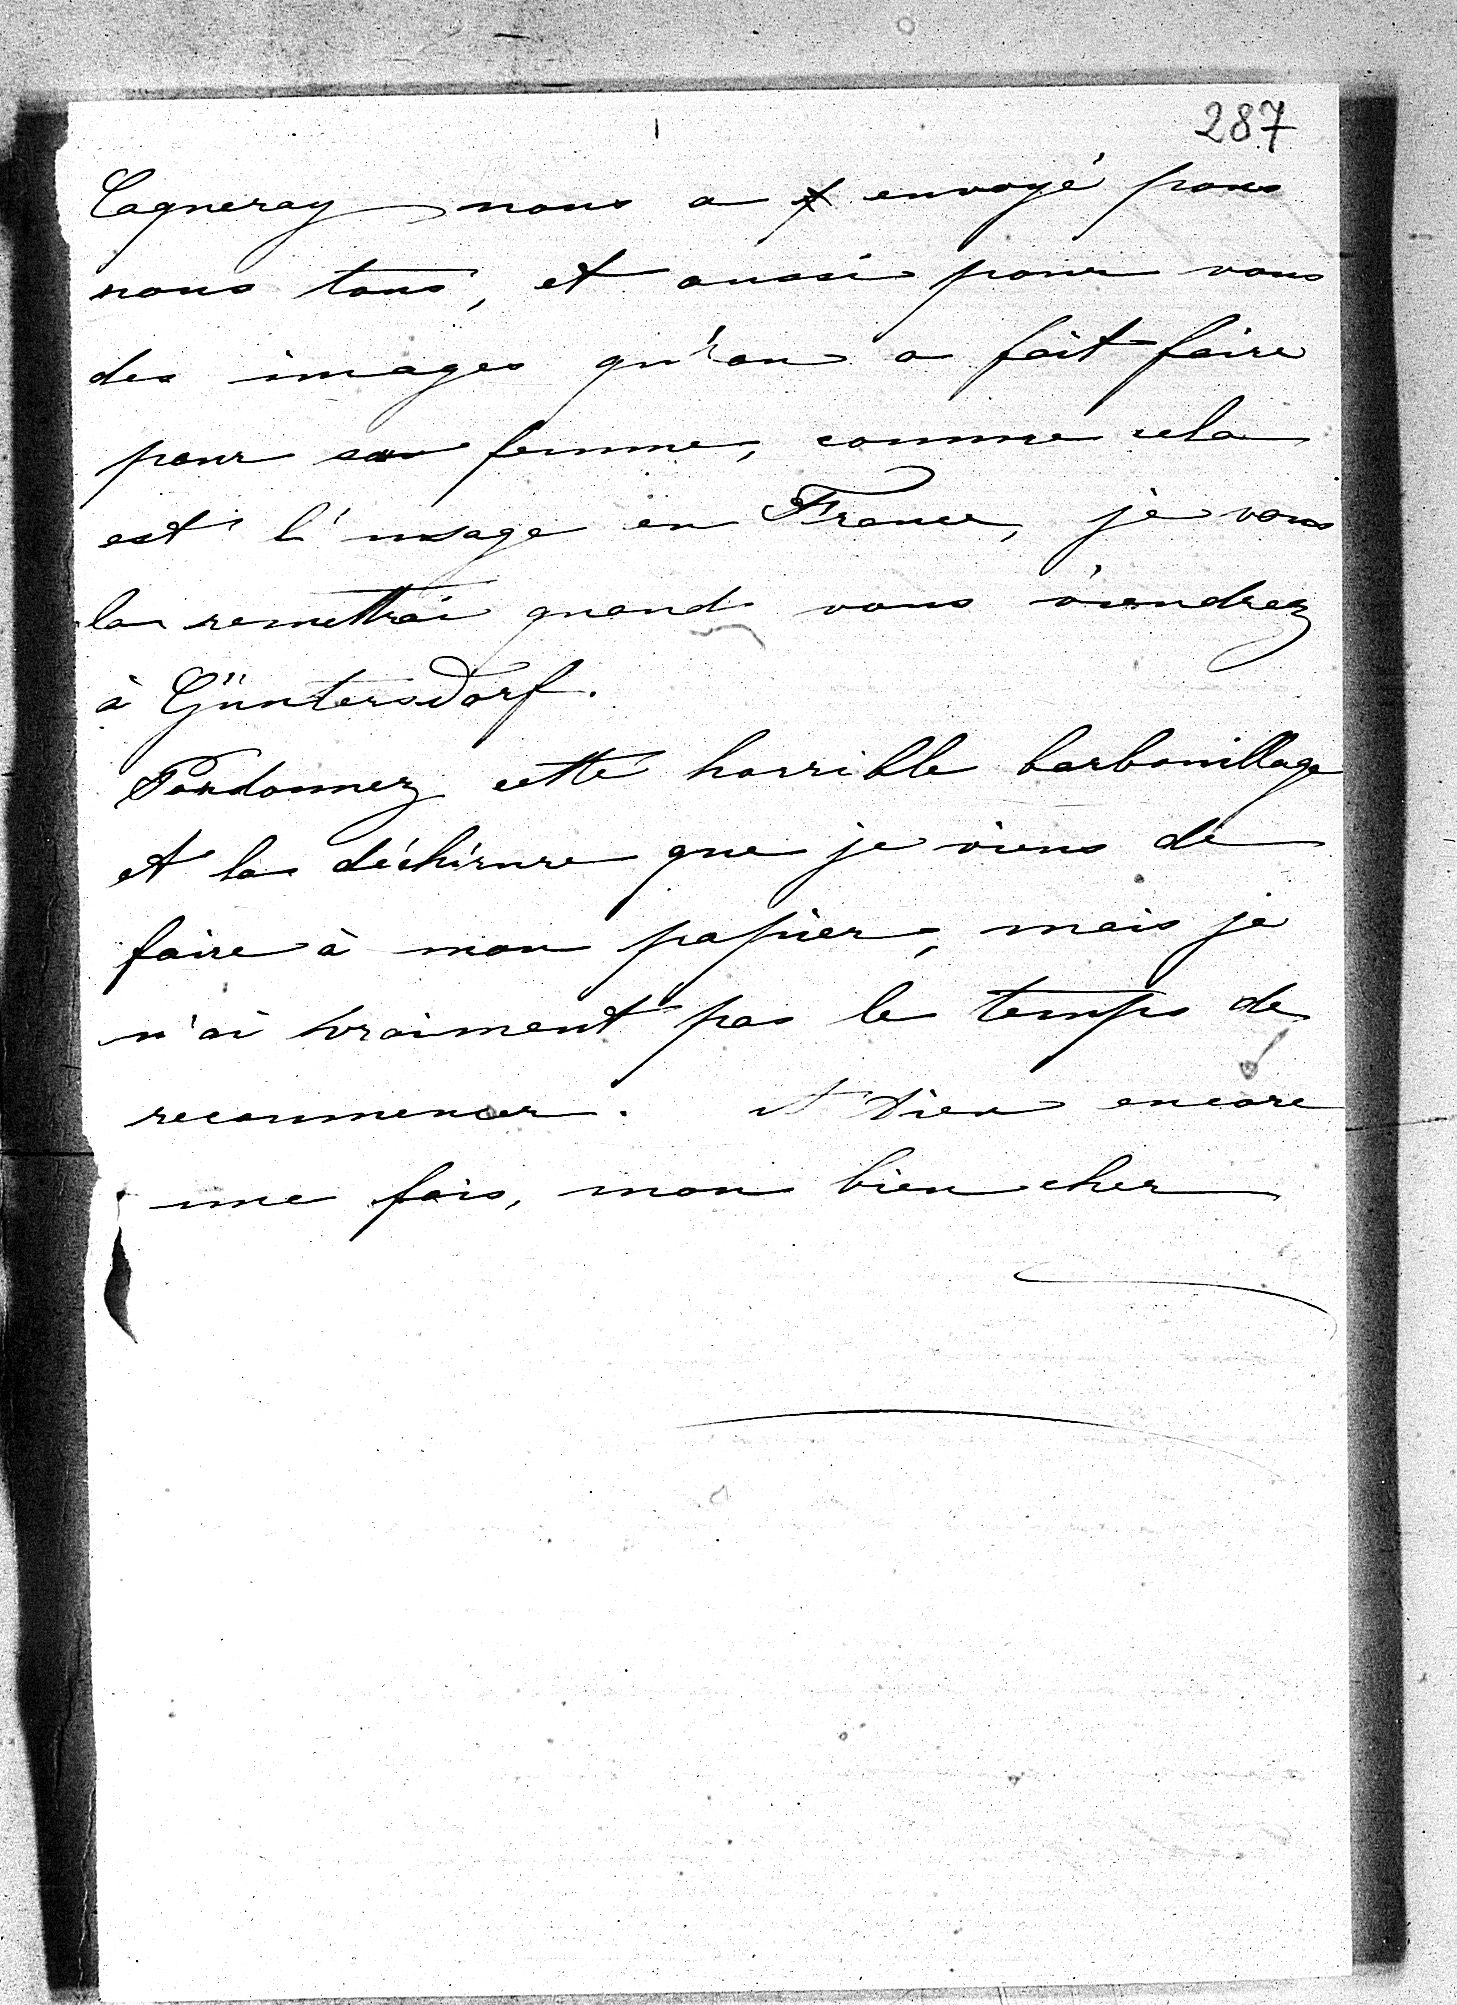 287
Cagneray nous a envoyé pour
nous tous, et aussi pour vous
des images qu'on a fait faire
pour sa femme, comme cela
est l'usage en France, je vous
la remettrai quand vous viendrez
à Güntersdorf.
Pardonnez cette horrible barbouillage
et la déchirure que je viens de
faire à mon papier, mais je
n'ai vraiment pas le temps de
recommencer. Adieu encore
une fois, mon bien cher